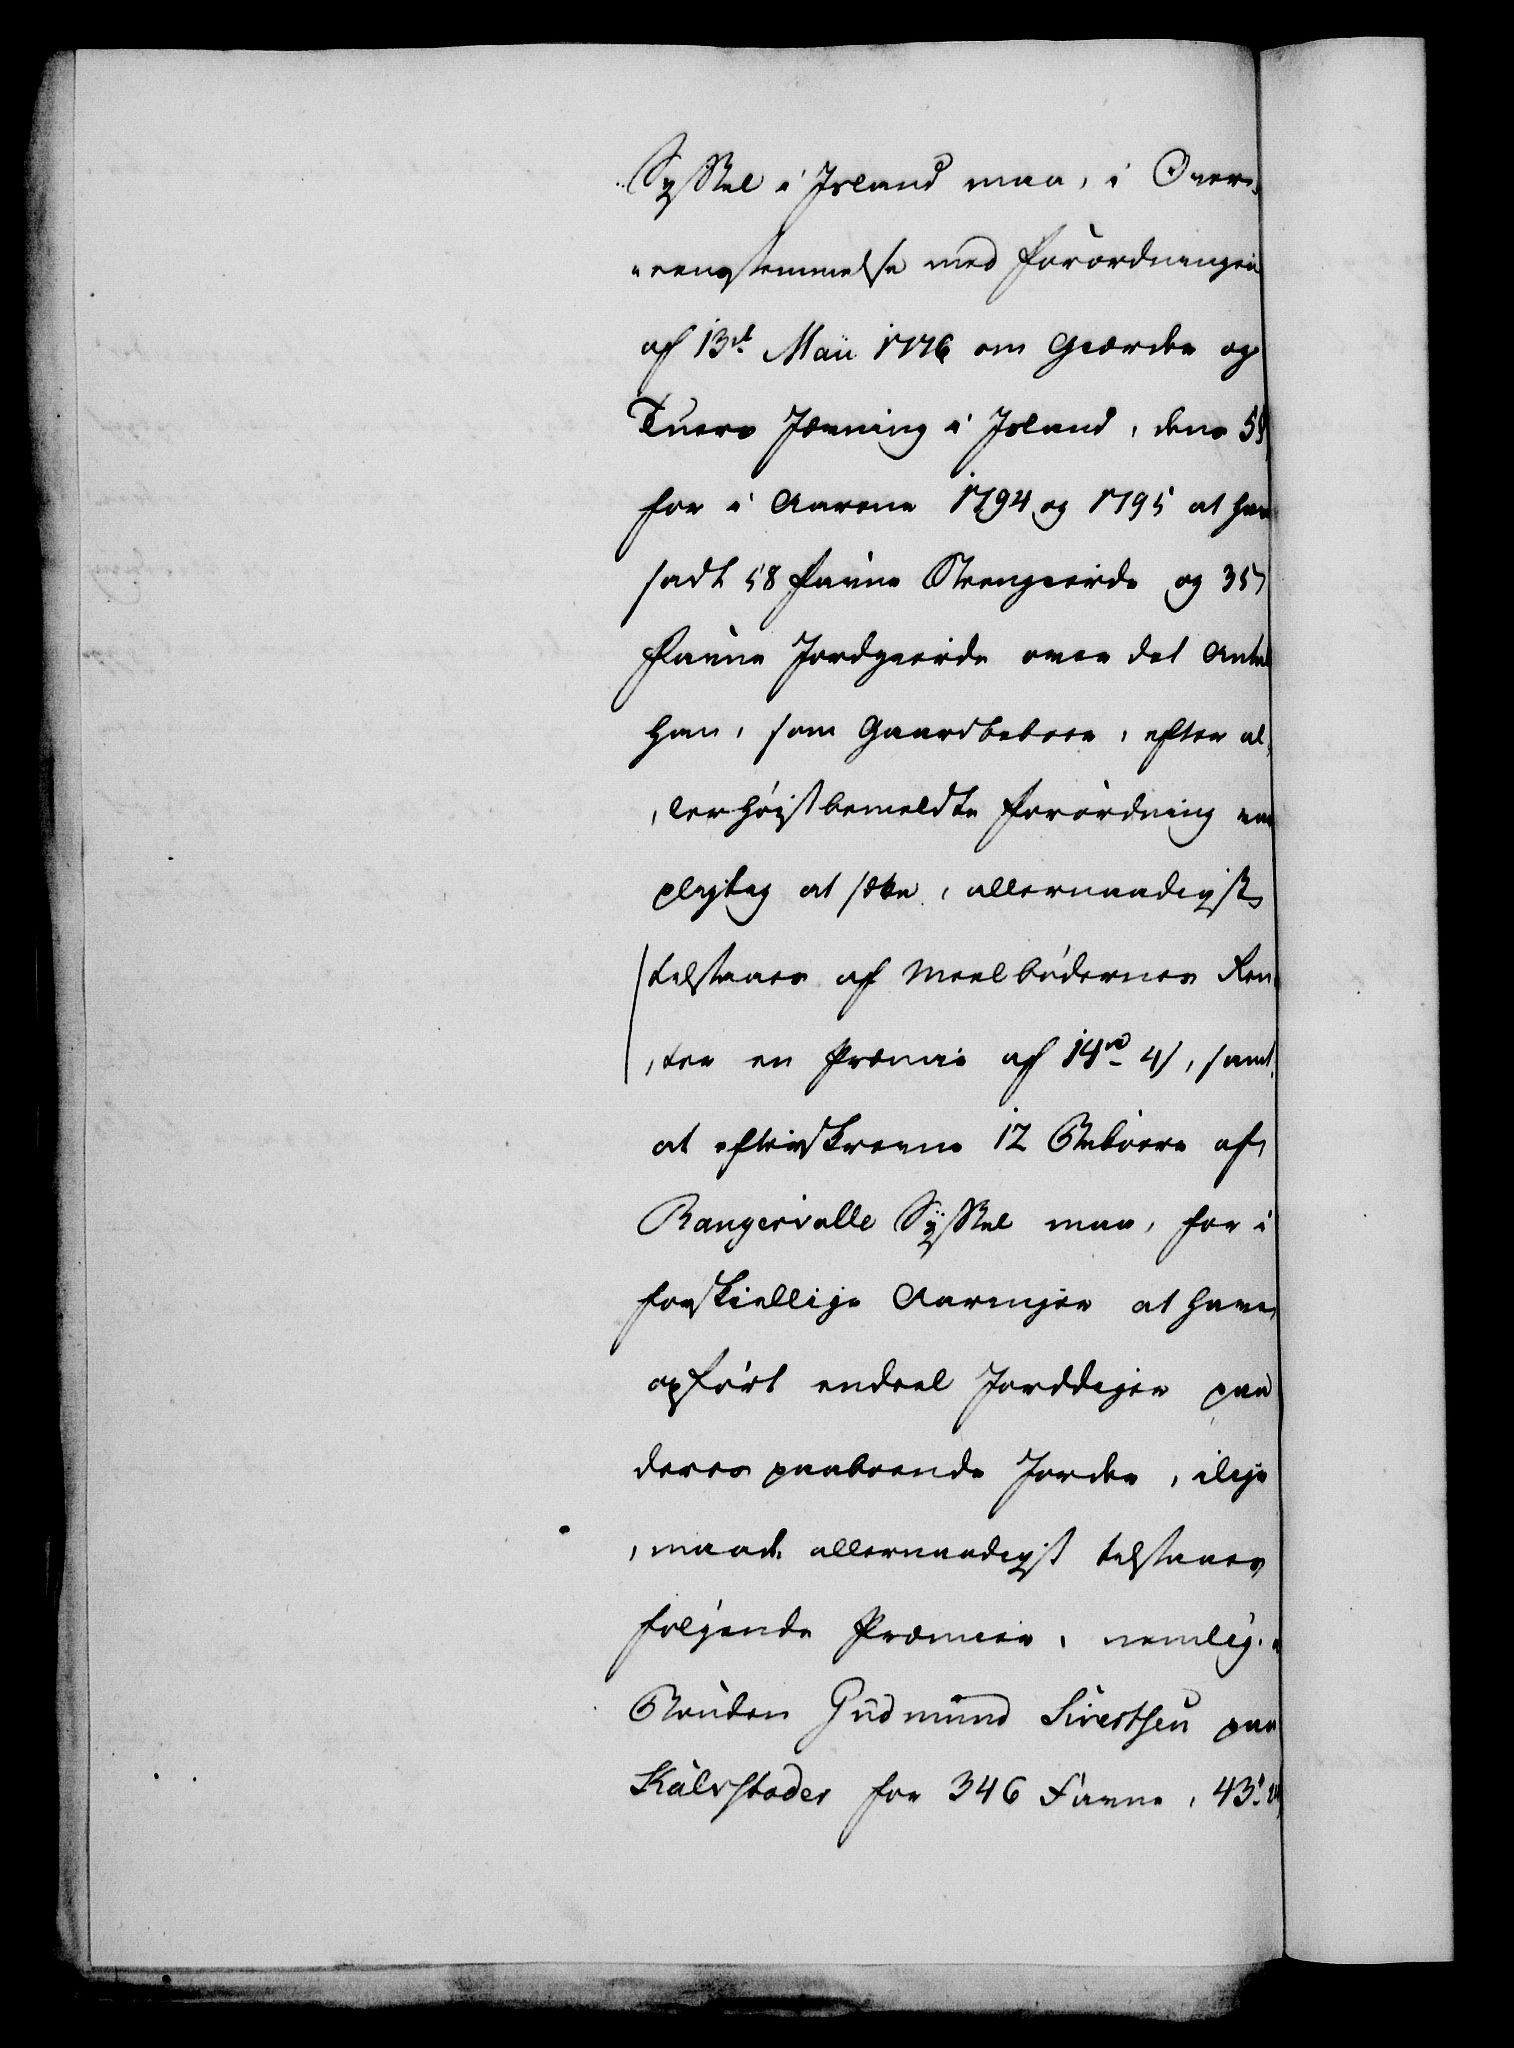 Syssel i Island maa, i Over-
eensstemmelse med Forordningen
af 13d Maii 1776 om Giærder og
Tuers Jævning i Island, dens 5§
for i Aarene 1794 og 1795 at have
sadt 58 Favne Steengierde og 357
Favne Jordgierde over det Antal
han, som Gaardbeboer, efter al-
lerhøistbemeldte Forordning var
pligtig at sætte, allernaadigst
tilstaaes af Meelbødernes Ren-
ter en Præmie af 14rd 4s, samt
at efterskrevne 12 Beboere af
Rangervalle Syssel maa, for i
forskiellige Aaringer at have
opført endeel Jorddiger paa
deres paaboende Jorder, lige-
maade allernaadigst tilstaaes
følgende Præmier, nemlig:
Bonden Gudmund Sivertsen paa
Kalvstader for 346 Favne, 43